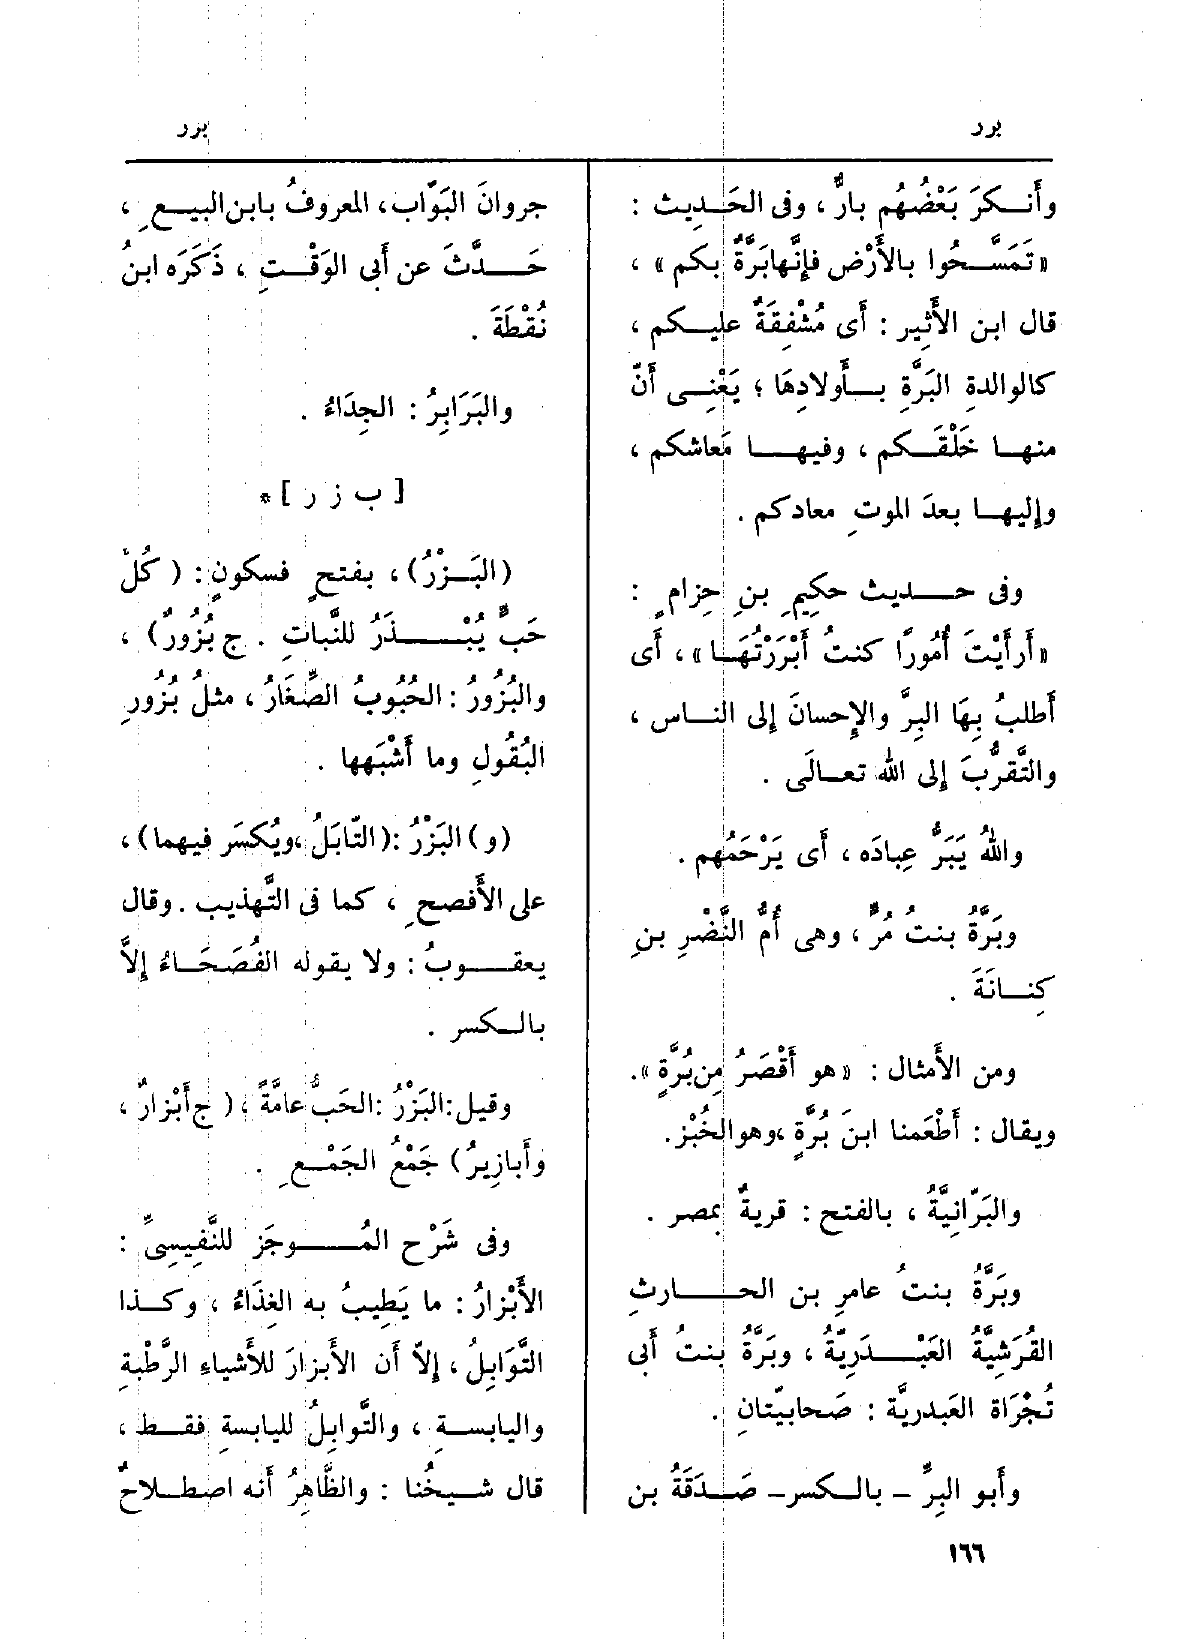 برر
برر
وأَنـكرَ بَعْضُهُم بارٌّ ، وفى الحَـدِيث :
«تَمَسَّـحُوا بالأَرْض فإِنَّهابَرَّةٌ بكم» ،
قال ابن الأَثِير : أَى مُشْفِقَةٌ عليـكم ،
كالوالدةِ البَرَّةِ بـأَولادِهَا ؛ يَعْنِـى أَنّ
منهـا خَلْقَـكم ، وفيهـا مَعاشكم ،
وإِليهـا بعدَ الموتِ معادكم .
وفى حـديث حكِيمِ بنِ حِزامٍ :
«أَرأَيْتَ أُمُورًا كنتُ أَبْرَرْتُهَـا» ، أَى
أَطلبُ بِهَا البِرَّ والإِحسانَ إِلى النـاس ،
والتَّقرُّبَ إِلى الله تعـالَى .
واللهُ يَبَرُّ عِبادَه ، أَى يَرْحَمُهم .
وبَرَّةُ بنتُ مُرٍّ ، وهى أُمُّ النَّضْرِ بنِ
كِنـانَةَ .
ومن الأَمثال : «هو أَقْصَرُ مِن بُرَّةٍ».
ويقال : أَطْعَمنا ابنَ بُرَّةٍ ،وهو الخُبْز.
والبَرّانِيَّةُ ، بالفتح : قريةٌ بمصر .
وبَرَّةُ بنتُ عامرِ بن الحـارثِ
القُرَشِيَّةُ العَبْـدَرِيّةُ ، وبَرَّةُ بنتُ أَبى
تُجْرَاة العَبدرية : صَحابيّتانِ .
وأَبو البِرِّ – بالـكسر– صَـدَقَةُ بن
جروانَ البَوّاب، المعروفُ بابن البيـع ِ ،
حَـدَّثَ عن أَبى الوَقْـتِ ، ذَكَرَه ابنُ
نُقْطَةَ .
والبَرَابِرُ : الجِدَاءُ .
[ ب ز ر ]*
(البَـزْرُ) ، بفتحٍ فسكونٍ : ( كُلُّ
حَبٍّ يُبْـذَرُ للنَّباتِ . ج بُزُورٌ) ،
والبُزُورُ : الحُبُوبُ الصِّغَارُ ، مثلُ بُزُورِ
البُقُولِ وما أَشْبَهها .
(و) البَزْرُ :(التّابَلُ ،ويُكسَر فيهما) ،
على الأَفصح ِ ، كما فى التَّهذيب . وقال
يعقـوبُ : ولا يقوله الفُصَحَاءُ إِلاَّ
بالـكسر .
وقيل:البَزْرُ :الحَبُّ عامَّةً ، ( ج أَبْزارٌ ،
وأَبازِيرُ) جَمْعُ الجَمْـع ِ .
وفى شَرْح المُـوجَز للنَّفِيسِىِّ :
الأَبْزارُ : ما يَطِيبُ به الغِذَاءُ ، وكـذا
التَّوَابِلُ ، إِلاّ أَن الأَبزارَ للأَشياءِ الرَّطْبةِ
واليابسـةِ ، والتَّوابِلُ لليابسةِ فقـط ،
قال شـيخُنا : والظَّاهِرُ أَنه اصطـلاحٌ
١٦٦